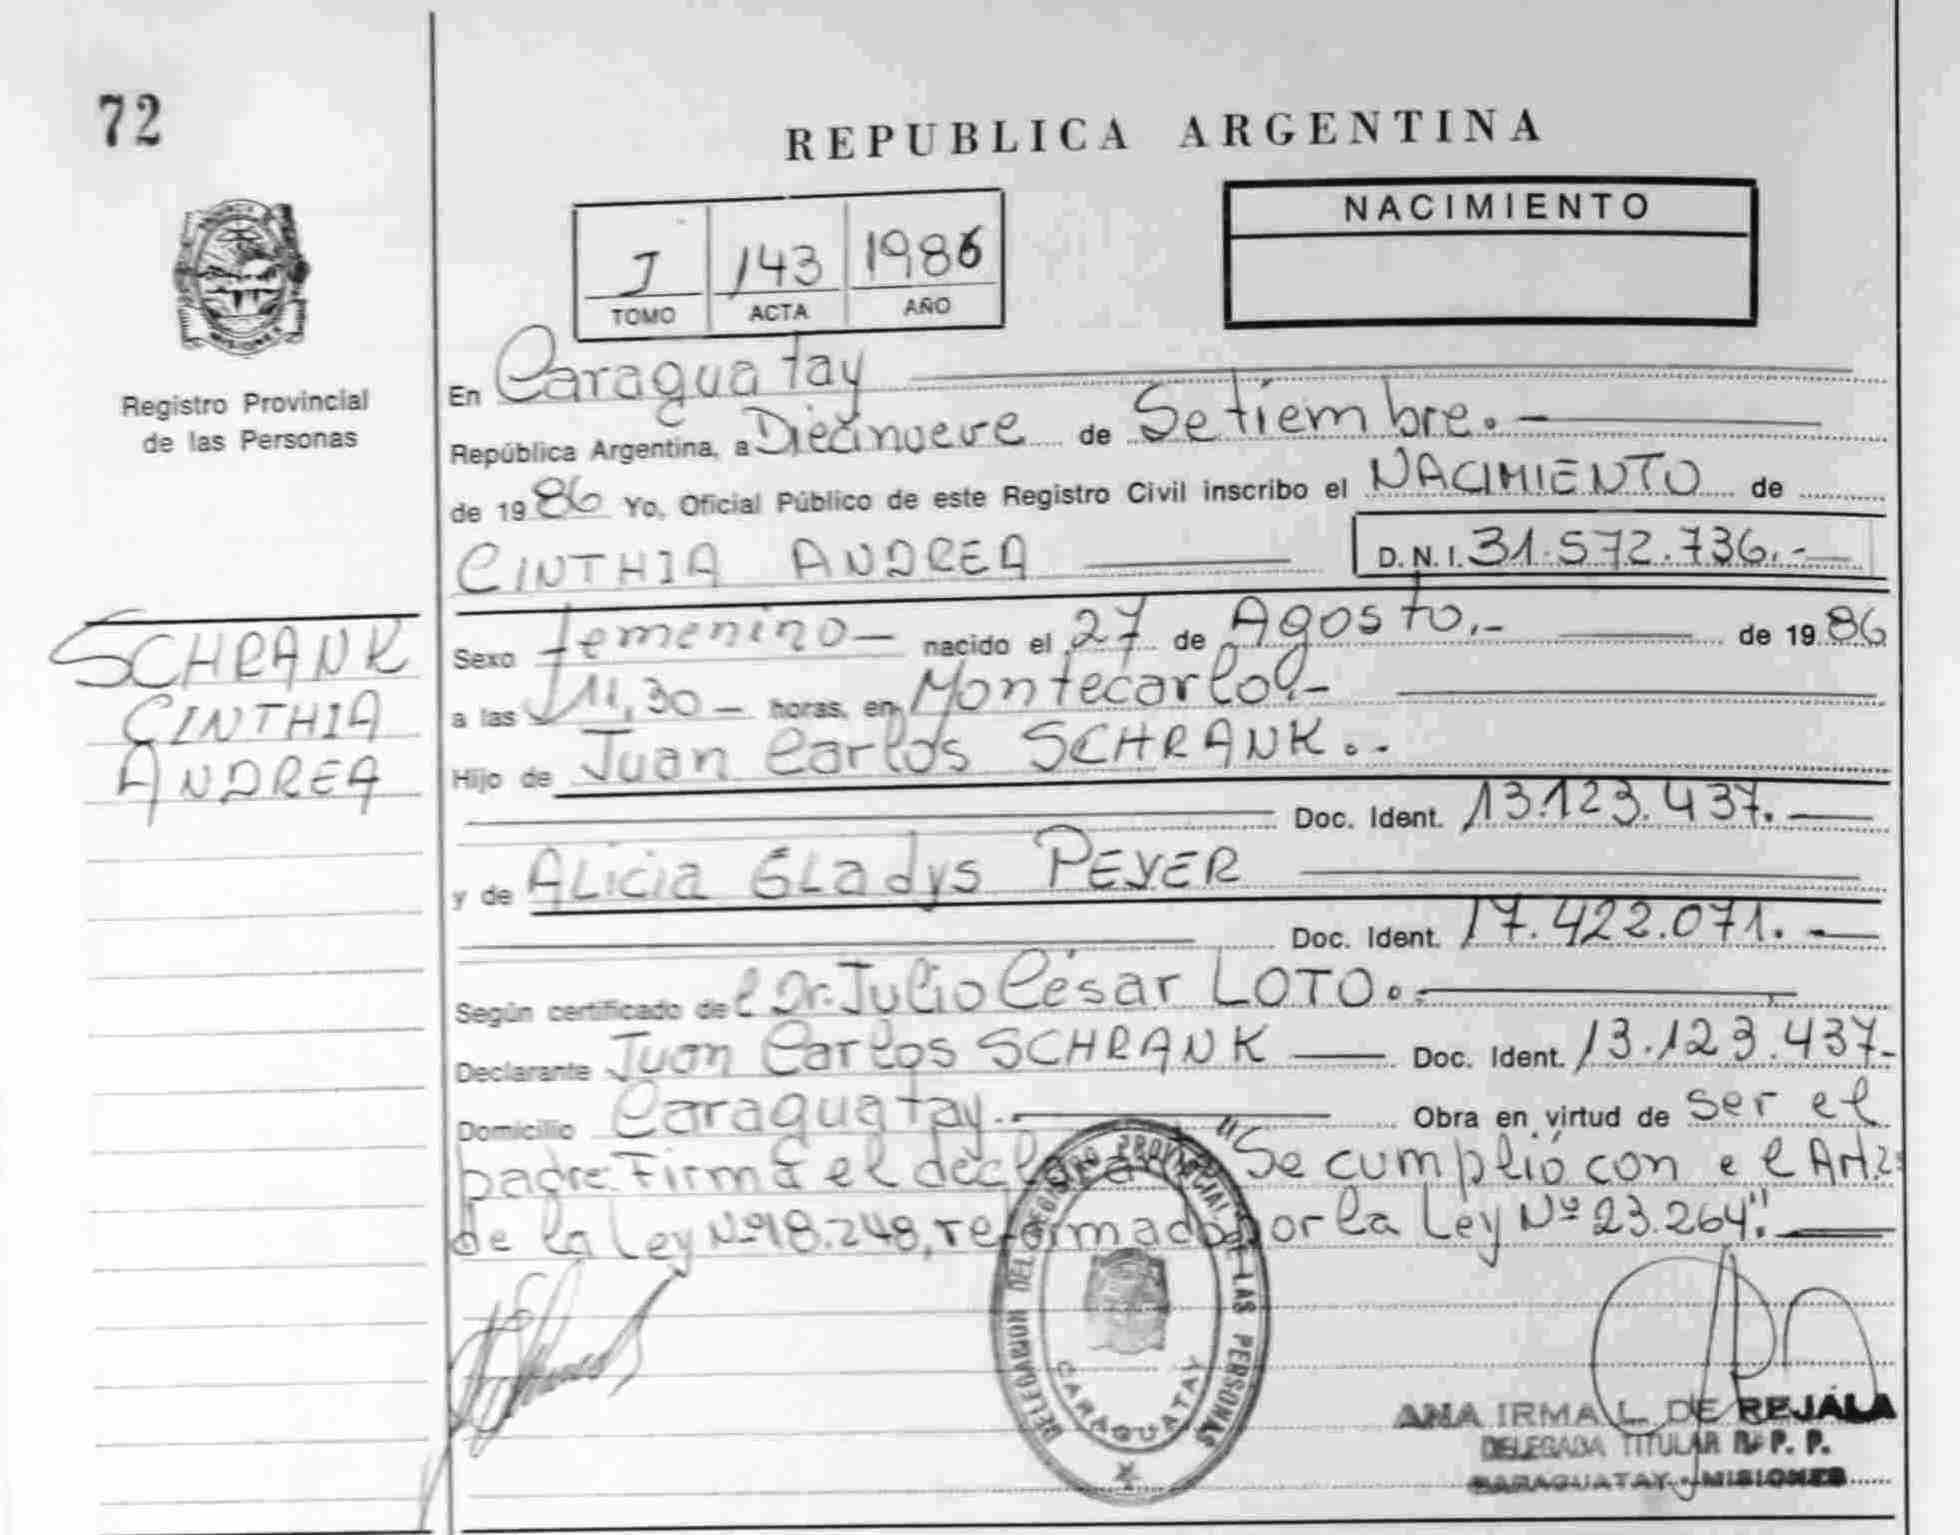 72
REPUBLICA ARGENTINA
MISIONES
Registro Provincial
de las Personas
I 143 1986
TOMO ACTA AÑO
NACIMIENTO
En Caraguatay
República Argentina, a Diecinueve de Setiembre.-
de 1986 Yo, Oficial Público de este Registro Civil inscribo el NACIMIENTO de
CINTHIA ANDREA D.N.I. 31.572.736.-
SCHRANK
CINTHIA
ANDREA
Sexo femenino- nacido el 27 de Agosto.- de 1986
a las 11,30- horas, en Montecarlo.-
Hijo de Juan Carlos SCHRANK.-
Doc. Ident. 13.123.437.-
y de ALicia GLadys PEYER
Doc. Ident. 17.422.071.-
Según certificado del Dr. Julio César LOTO.-
Declarante Juan Carlos SCHRANK Doc. Ident. 13.123.437-
Domicilio Caraguatay.- Obra en virtud de ser el
padre. Firma el "Se cumplió con el Art. 2
de la Ley Nº18.248, reformado por la Ley Nº 23.264".-
DELEGACION DEL REGISTRO PROVINCIAL DE LAS PERSONAS
CARAGUATAY
ANA IRMA L. DE REJALA
DELEGADA TITULAR R. P. P.
CARAGUATAY - MISIONES